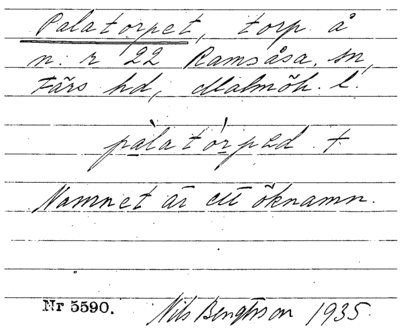 Palatorpet, torp å
n:r 22 Ramsåsa, sn,
Färs hd, Malmöh. l.
pàlatórped. +
Namnet är ett öknamn.
Nr 5590. Nils Bengtsson 1935.